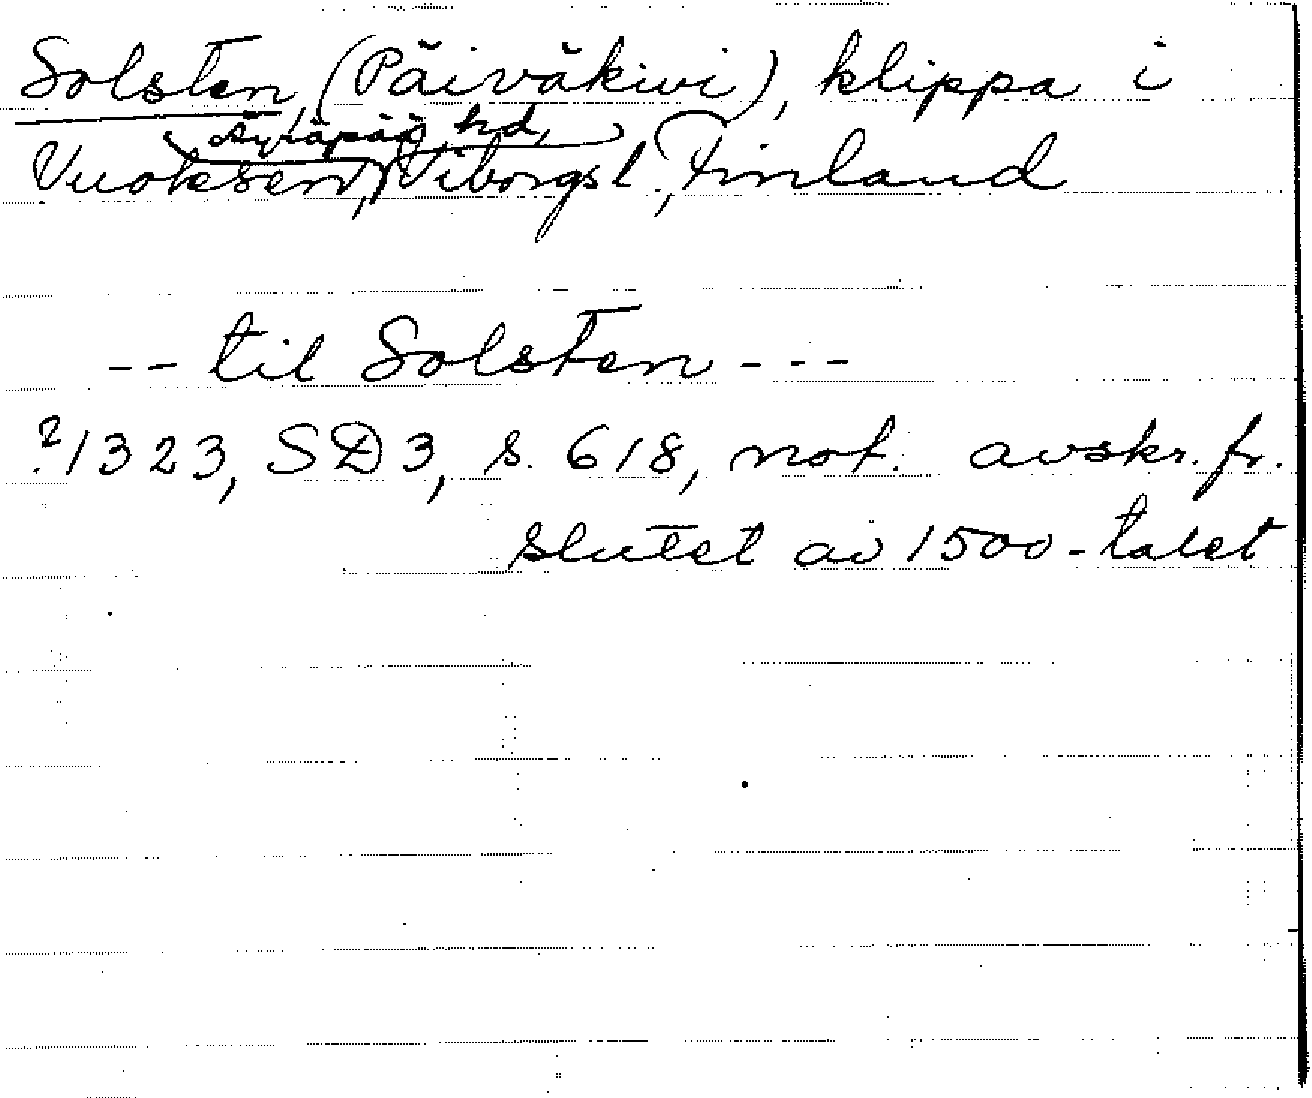 Solsten, (Päiväkivi), klippa i
Äyräpää hd,
Vuoksen, Viborgs l., Finland
-- til Solsten ---
?1323, SD3, s. 618, not. avskr. fr.
slutet av 1500-talet